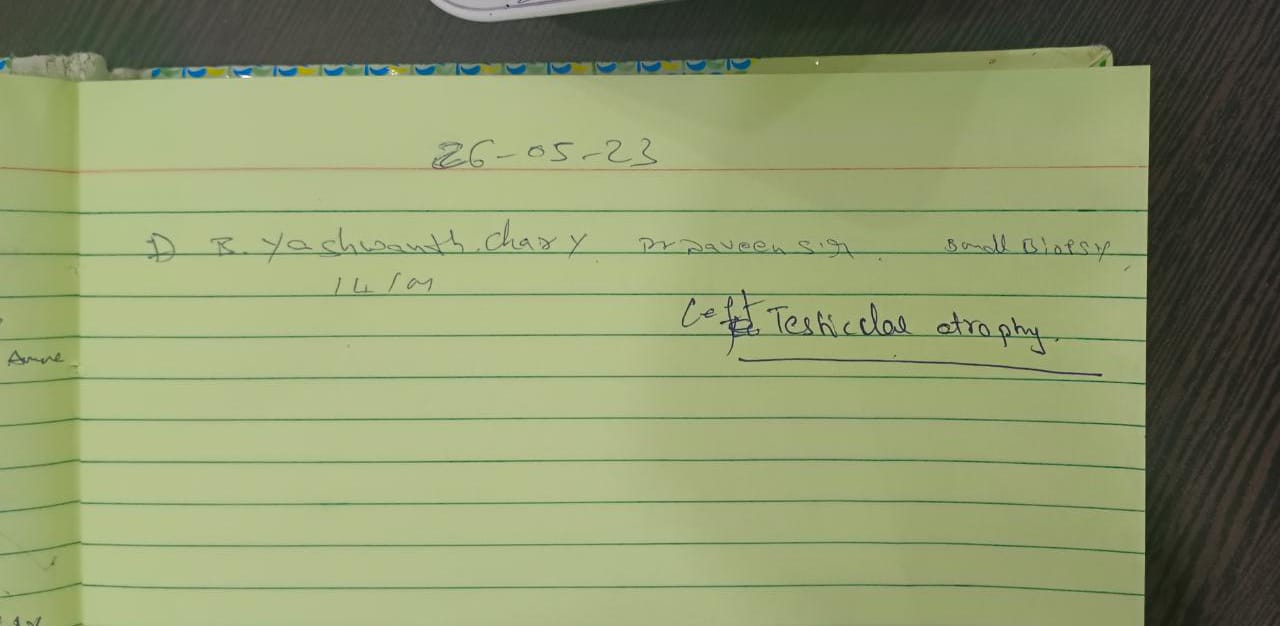 26-05-23
1) B. Yashwanth. chary Dr Daveen Sir. Small Biopsy
14/m
Left Testicular atrophy.